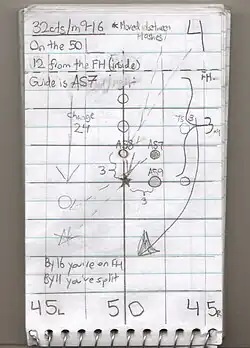 32cts/m9-16 *Moved between Hashes!
4
On the 50
12 from the FH (inside)
Guide is AS7
FH
change
24
TS
3
3
AS8
AS7
3
AS9
3
By 16 you're on FH
By 11 you've split
45L
50
45R